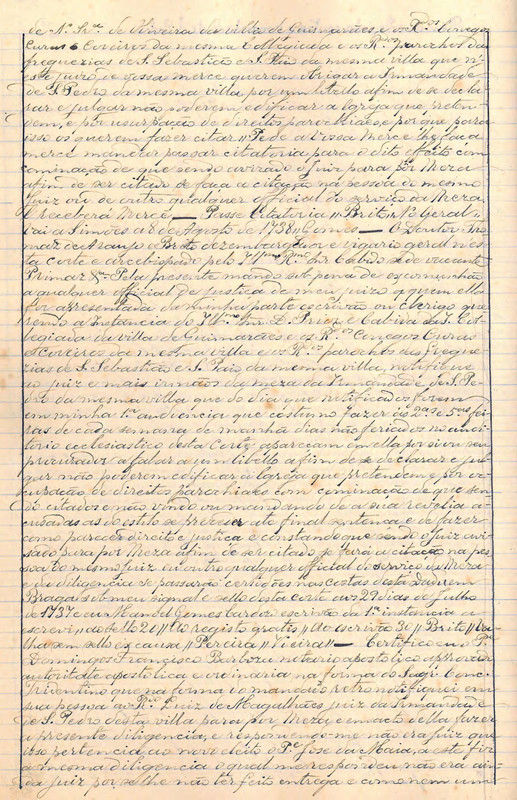 de N. Sr.ª de Oliveira da villa de Guimarães e os R.dos Conegos
Curas e Coreiros da mesma Collegiada e os R.os Parochos das
freguezias de S. Sebastião e S. Paio da mesma villa que n'
este juizo de vossa mercê querem obrigar a Irmandade
de S. Pedro da mesma villa, por um libello afim de se decla
rar e julgar não poderem edificar a Igreja que preten
dem, e por usurpação de direitos parochiaes e por que para
isso os querem fazer citar, Pede a Vossa Mercê lhe faça
mercê mandar passar citatoria para o dito effeito com
cominação de que sendo avisado o Juiz para pôr Meza
afim de ser citado se faça a citação na pessoa do mesmo
Juiz ou de outro qualquer official do serviço da Meza
E receberá Mercê — Passe Citatoria Brito N.º Geral
de Agosto de 1738 Gomes — O Doutor
de Araujo de Brito dezembargador e vigario geral nes
ta corte e arcebispado pelo Ill.mo R.mo Snr. Cabido séde vacante
Primaz &.ª Pela presente mando sob pena de excomunhão
a qualquer official de justiça de meu juizo a quem ella
fôr apresentada da minha parte escrivão ou clerigo que
rendo a instancia do Ill.mo Snr. D. Prior e Cabido da S. Col
legiada da villa de Guimarães e os R.os Conegos Curas
e Coreiros da mesma villa e os R.os parochos das fregue
zias de S. Sebastião e S. Paio da mesma villa, notifique
ao juiz e mais irmãos da meza da Irmandade de S. Pe
dro da mesma villa que do dia que notificados forem
em minha 1.ª audiencia que costumo fazer ás 2.as e 5.as fei
ras de cada semana de manhã dias não feriados no audi
torio ecclesiastico desta Corte appareçam em ella por si ou seu
procurador a falar a um libello afim de se declarar e jul
gar não poderem edificar a Igreja que pretendem e por u
surpação de direitos parochiaes com cominação de que sen
do citados e não vindo ou mandando de a sua revelia a
cusadas as do estilo se proceder até final sentença e de fazer
como parecer direito e justiça e constando que sendo o juiz avi
sado para pôr Meza afim de ser citado se fará a citação na pes
soa do mesmo Juiz ou outro qualquer official do serviço da Meza
e da diligencia se passarão certidões nas costas desta dada em
Braga sob meu signal e sello desta corte aos 29 dias de Julho
de 1737 e eu Manuel Gomes escrivão da 1.ª instancia a
escrevi, ao sello 20, Ao registo gratis, Ao escrivão 30, Brito, Va
lha sem sello ex causa, Pereira, Vieira — Certifico eu o P.e
Domingos Francisco Barboza notario apostolico approvado
autoritate apostolica e ordinaria na forma do Sagr. Conc.
Tridentino que na forma do mandado retro notifiquei em
sua pessoa ao R.do Luiz de Magalhães juiz da Irmandade
de S. Pedro desta villa para por Meza, e em acto della fazer
a presente diligencia, e respondeu-me não era juiz que
isso pertencia ao novo eleito o P.e José da Maia, a este fiz
a mesma diligencia o qual me respondeu não era ain
da juiz por se lhe não ter feito entrega e como nem um